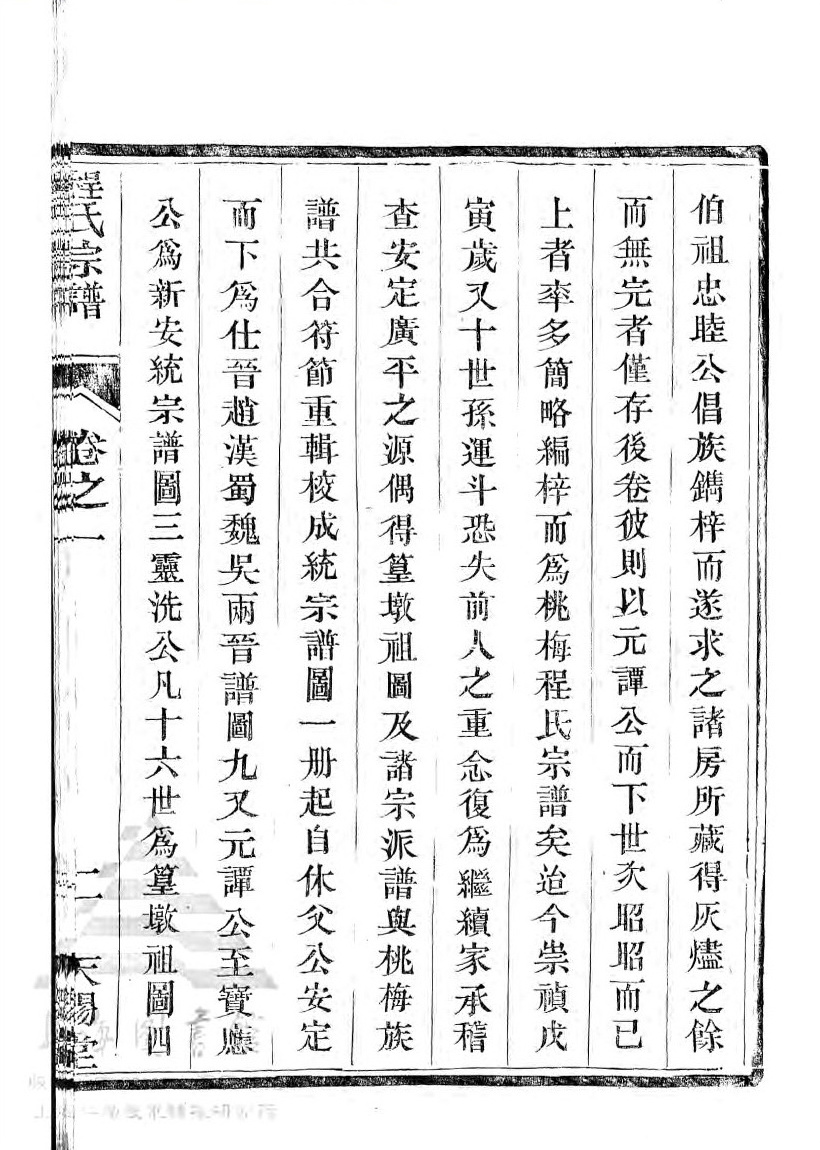 伯祖忠睦公倡族鐫梓而遂求之諸房所藏得灰燼之餘
而無完者僅存後卷彼則以元譚公而下世次昭昭而已
上者率多簡略編梓而爲桃梅程氏宗譜矣迨今崇禎戊
寅歲又十世孫運斗恐失前人之重念復爲繼續家承稽
查安定廣平之源偶得篁墩祖圖及諸宗派譜與桃梅族
譜共合符節重輯校成統宗譜圖一册起自休父公安定
而下爲仕晉趙漢蜀魏吳兩晉譜圖九又元譚公至寶應
公爲新安統宗譜圖三靈洗公凡十六世爲篁墩祖圖四
程氏宗譜
卷之一
二
天賜堂